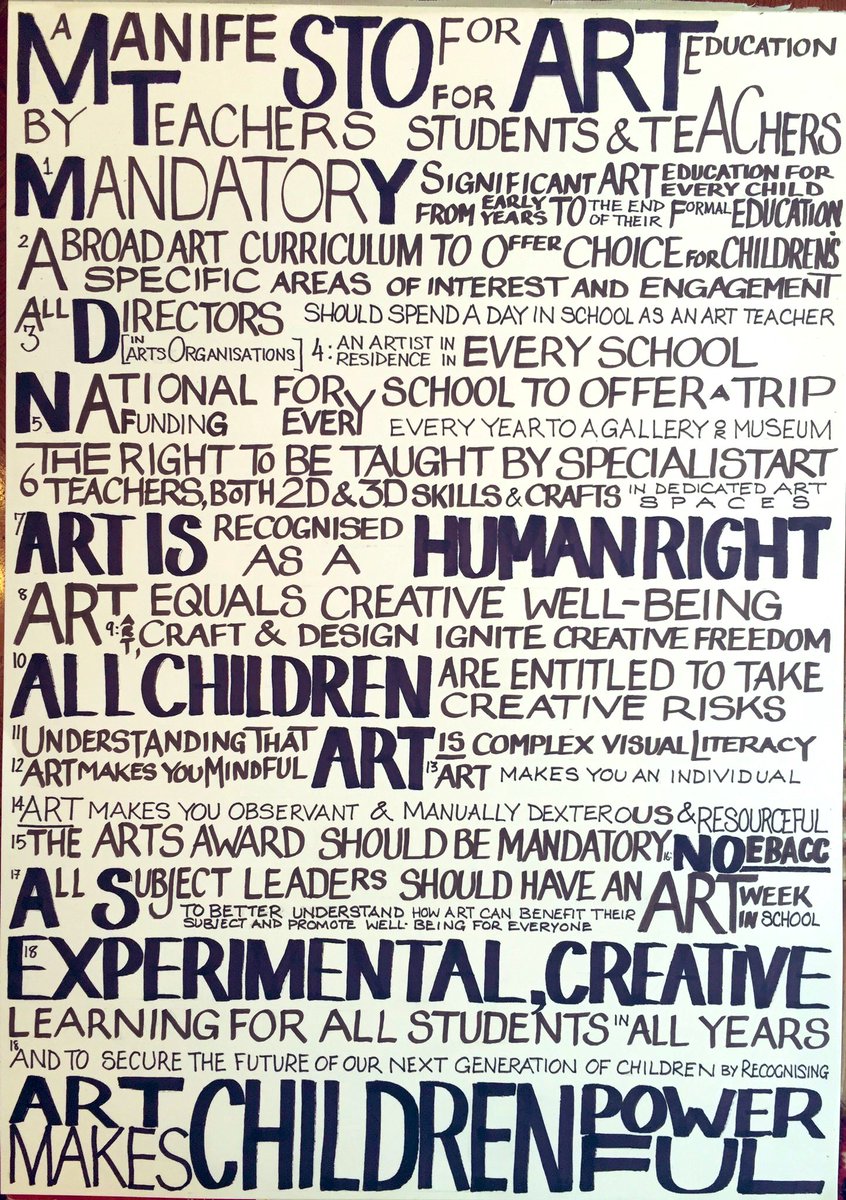 A MANIFESTO FOR ART EDUCATION
BY TEACHERS FOR STUDENTS & TEACHERS
1 MANDATORY SIGNIFICANT ART EDUCATION FOR EVERY CHILD
FROM EARLY YEARS TO THE END OF THEIR FORMAL EDUCATION
2 A BROAD ART CURRICULUM TO OFFER CHOICE FOR CHILDREN'S
SPECIFIC AREAS OF INTEREST AND ENGAGEMENT
3 ALL DIRECTORS [IN ARTS ORGANISATIONS] SHOULD SPEND A DAY IN SCHOOL AS AN ART TEACHER
4: AN ARTIST IN RESIDENCE IN EVERY SCHOOL
5 NATIONAL FUNDING FOR EVERY SCHOOL TO OFFER A TRIP
EVERY YEAR TO A GALLERY OR MUSEUM
6 THE RIGHT TO BE TAUGHT BY SPECIALIST ART
TEACHERS, BOTH 2D & 3D SKILLS & CRAFTS IN DEDICATED ART SPACES
7 ART IS RECOGNISED AS A HUMAN RIGHT
8 ART EQUALS CREATIVE WELL-BEING
9: ART, CRAFT & DESIGN IGNITE CREATIVE FREEDOM
10 ALL CHILDREN ARE ENTITLED TO TAKE CREATIVE RISKS
11 UNDERSTANDING THAT ART IS COMPLEX VISUAL LITERACY
12 ART MAKES YOU MINDFUL 13 ART MAKES YOU AN INDIVIDUAL
14 ART MAKES YOU OBSERVANT & MANUALLY DEXTEROUS & RESOURCEFUL
15 THE ARTS AWARD SHOULD BE MANDATORY 16: NO EBACC
17 ALL SUBJECT LEADERS SHOULD HAVE AN ART WEEK IN SCHOOL
TO BETTER UNDERSTAND HOW ART CAN BENEFIT THEIR
SUBJECT AND PROMOTE WELL-BEING FOR EVERYONE
18 EXPERIMENTAL, CREATIVE
LEARNING FOR ALL STUDENTS IN ALL YEARS
18 AND TO SECURE THE FUTURE OF OUR NEXT GENERATION OF CHILDREN BY RECOGNISING
ART MAKES CHILDREN POWERFUL